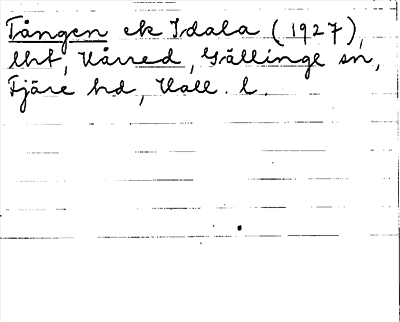 Tången ek Idala (1927),
lht, Kårred, Gällinge sn,
Fjäre hd, Hall. l.